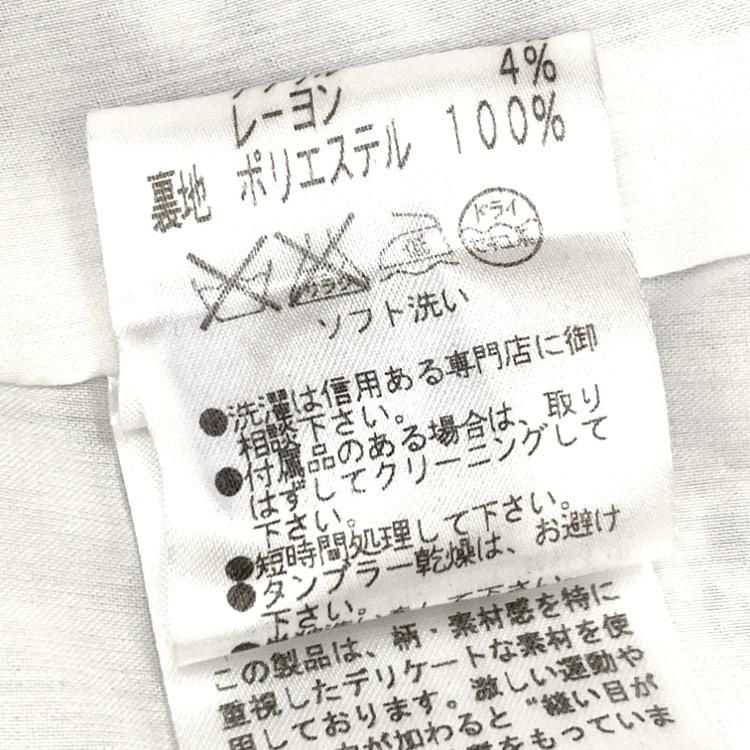 4%
レーヨン
裏地 ポリエステル 100%
サラシ
低
ドライ
セキユ系
ソフト洗い
●洗濯は信用ある専門店に御
相談下さい。
●付属品のある場合は、取り
はずしてクリーニングして
下さい。
●短時間処理して下さい。
●タンブラー乾燥は、お避け
下さい。
この製品は、柄・素材感を特に
重視したデリケートな素材を使
用しております。激しい運動や
が加わると"縫い目が
をもっていま